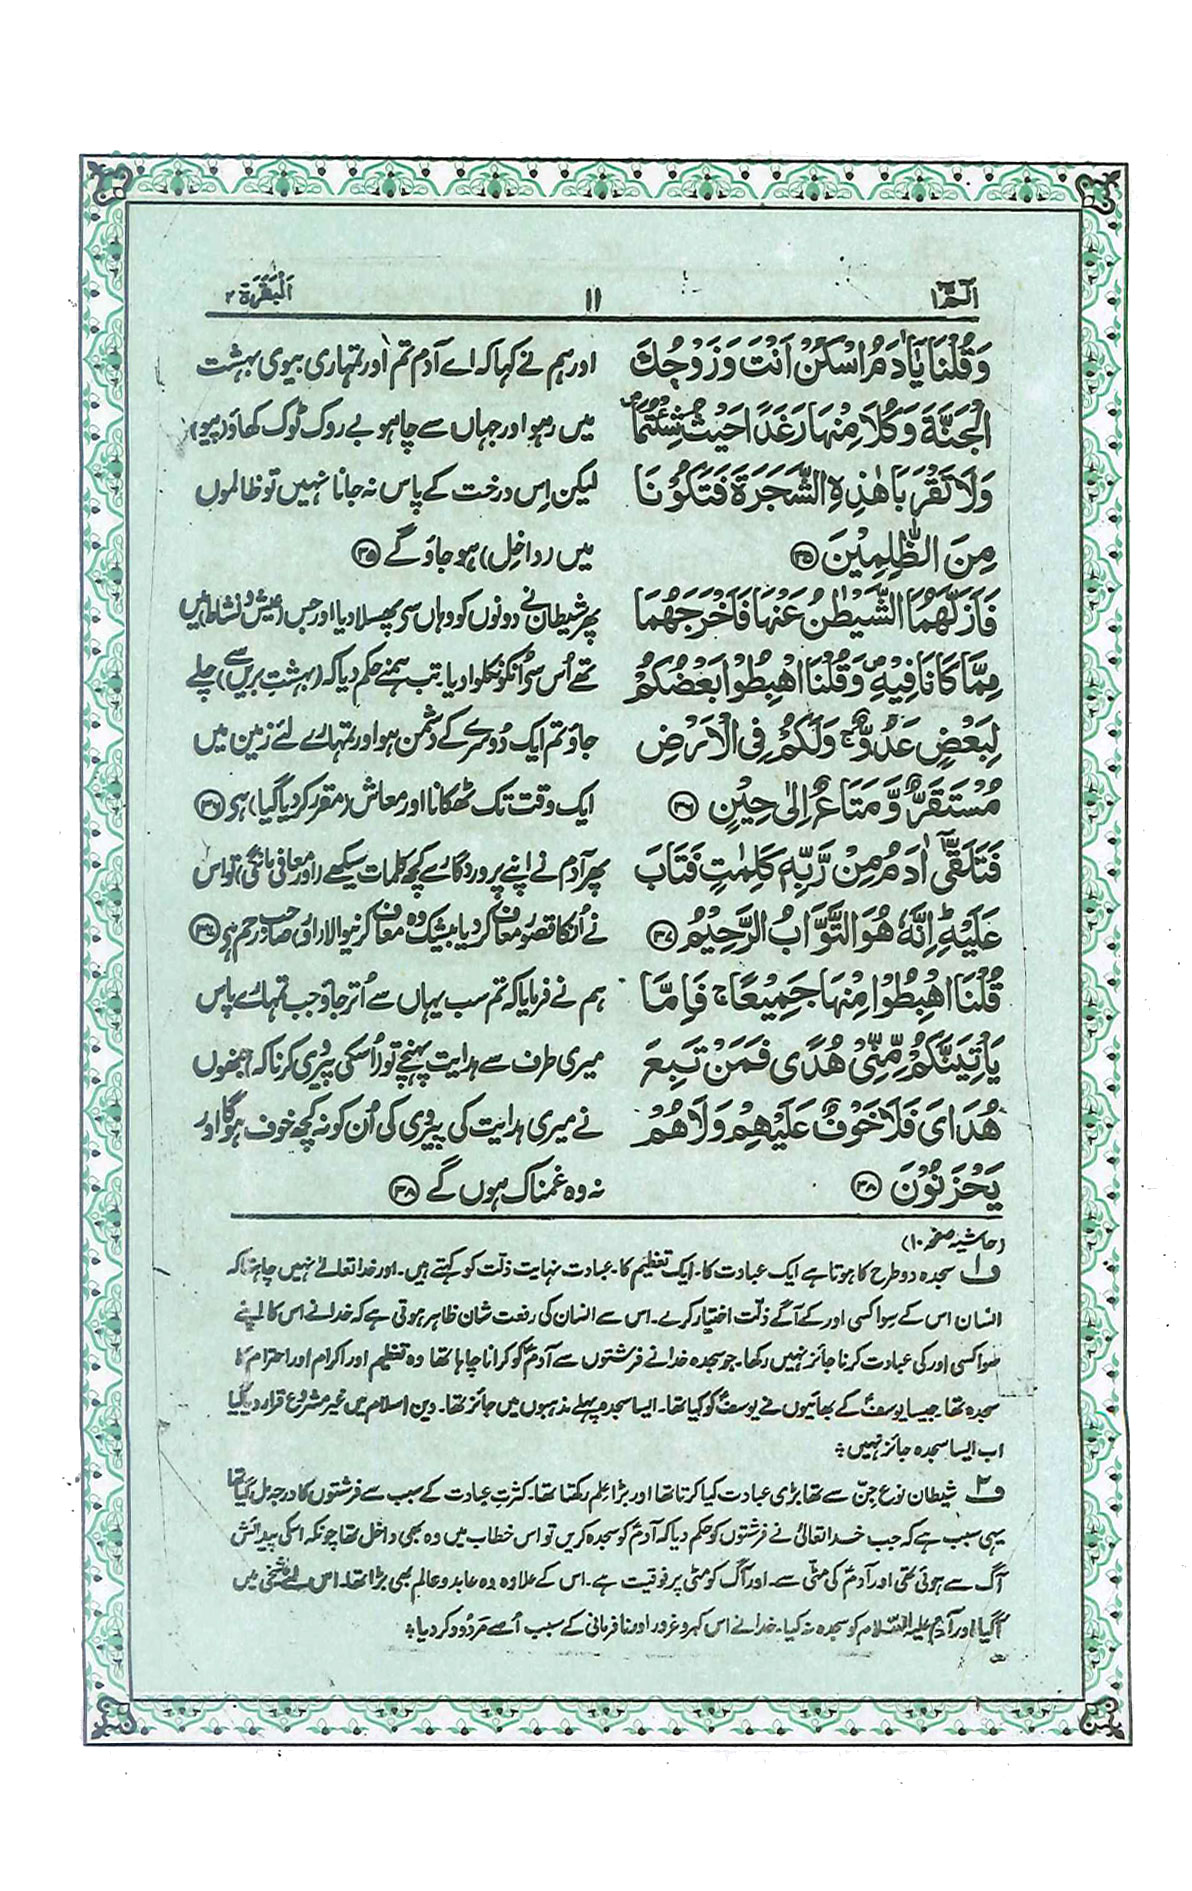 الٓمّٓ ١ ۱۱ اَلْبَقَرَة ۲
وَقُلْنَا يٰٓاٰدَمُ اسْكُنْ اَنْتَ وَزَوْجُكَ اور ہم نے کہا کہ اے آدم تم اور تمہاری بیوی بہشت
الْجَنَّةَ وَكُلَا مِنْهَا رَغَدًا حَيْثُ شِئْتُمَا میں رہو اور جہاں سے چاہو بے روک ٹوک کھاؤ (پیو)
وَلَا تَقْرَبَا هٰذِهِ الشَّجَرَةَ فَتَكُوْنَا لیکن اِس درخت کے پاس نہ جانا نہیں تو ظالموں
مِنَ الظّٰلِمِيْنَ ۳۵ میں (داخل) ہو جاؤ گے ۳۵
فَاَزَلَّهُمَا الشَّيْطٰنُ عَنْهَا فَاَخْرَجَهُمَا پھر شیطان نے دونوں کو وہاں سے پھسلا دیا اور جس (عیش و نشاط) میں
مِمَّا كَانَا فِيْهِ ۪ وَقُلْنَا اهْبِطُوْا بَعْضُكُمْ تھے اُس سے اُنکو نکلوا دیا۔ تب ہمنے حکم دیا کہ (بہشت بریں سے) چلے
لِبَعْضٍ عَدُوٌّ ۚ وَلَكُمْ فِى الْاَرْضِ جاؤ تم ایک دُوسرے کے دشمن ہو اور تمہارے لئے زمین میں
مُسْتَقَرٌّ وَّمَتَاعٌ اِلٰى حِيْنٍ ۳۶ ایک وقت تک ٹھکانا اور معاش (مقرر کر دیا گیا) ہے ۳۶
فَتَلَقّٰٓى اٰدَمُ مِنْ رَّبِّهٖ كَلِمٰتٍ فَتَابَ پھر آدم نے اپنے پروردگار سے کچھ کلمات سیکھے (اور معافی مانگی) تو اس
عَلَيْهِ ؕ اِنَّهٗ هُوَ التَّوَّابُ الرَّحِيْمُ ۳۷ نے اُنکا قصور معاف کر دیا بیشک وہ معاف کرنیوالا (اور) صاحب رحم ہے ۳۷
قُلْنَا اهْبِطُوْا مِنْهَا جَمِيْعًا ۚ فَاِمَّا ہم نے فرمایا کہ تم سب یہاں سے اُتر جاؤ جب تمہارے پاس
يَاْتِيَنَّكُمْ مِّنِّىْ هُدًى فَمَنْ تَبِعَ میری طرف سے ہدایت پہنچے تو (اُسکی پیروی کرنا کہ) جنہوں
هُدَاىَ فَلَا خَوْفٌ عَلَيْهِمْ وَلَا هُمْ نے میری ہدایت کی پیروی کی اُن کو نہ کچھ خوف ہوگا اور
يَحْزَنُوْنَ ۳۸ نہ وہ غمناک ہوں گے ۳۸
(حاشیہ صفحہ ۱۰)
ف۱ سجدہ دو طرح کا ہوتا ہے ایک عبادت کا۔ ایک تعظیم کا۔ عبادت نہایت ذلّت کو کہتے ہیں۔ اور خدا تعالےٰ نہیں چاہتا کہ
انسان اس کے سِوا کسی اور کے آگے ذلّت اختیار کرے۔ اس سے انسان کی رفعت شان ظاہر ہوتی ہے کہ خدا نے اس کا اپنے
سوا کسی اور کی عبادت کرنا جائز نہیں رکھا۔ جو سجدہ خدا نے فرشتوں سے آدمؑ کو کرانا چاہا تھا وہ تعظیم اور اکرام اور احترام کا
سجدہ تھا۔ جیسا یوسفؑ کے بھائیوں نے یوسفؑ کو کیا تھا۔ ایسا سجدہ پہلے مذہبوں میں جائز تھا۔ دین اسلام میں غیر مشروع قرار دیا گیا
اب ایسا سجدہ جائز نہیں۔
ف۲ شیطان نوع جنّ سے تھا بڑی عبادت کیا کرتا تھا اور بڑا علم رکھتا تھا۔ کثرتِ عبادت کے سبب سے فرشتوں کا درجہ مل گیا تھا
یہی سبب ہے کہ جب خدا تعالیٰ نے فرشتوں کو حکم دیا کہ آدمؑ کو سجدہ کریں تو اس خطاب میں وہ بھی داخل تھا چونکہ اسکی پیدائش
آگ سے ہوئی تھی اور آدمؑ کی مٹّی سے۔ اور آگ کو مٹی پر فوقیت ہے۔ اس کے علاوہ وہ عابد و عالم بھی بڑا تھا۔ اس لئے شیخی میں
آگیا اور آدم علیہ السّلام کو سجدہ نہ کیا۔ خدا نے اس کبر و غرور اور نافرمانی کے سبب اُسے مَردُود کر دیا۔